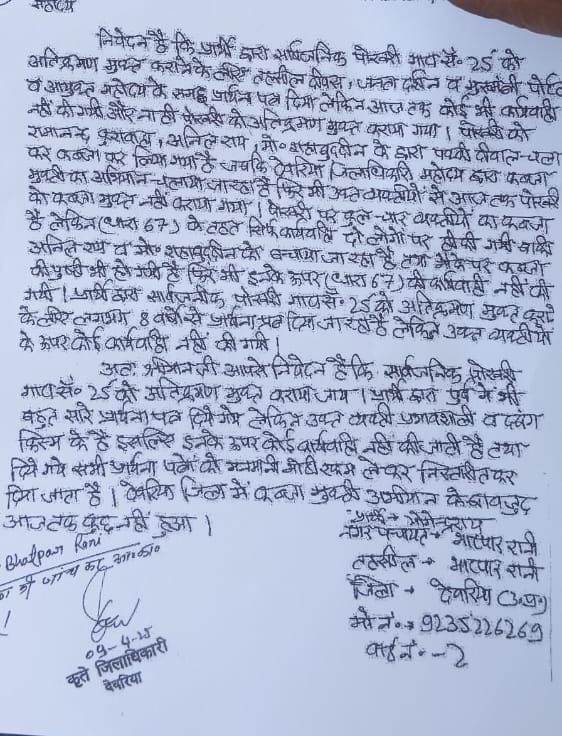 महोदय
निवेदन है कि प्रार्थी द्वारा सार्वजनिक पोखरी गाटा सं. 25 को
अतिक्रमण मुक्त कराने के लिए तहसील दिवस, जनता दर्शन व मुख्यमंत्री पोर्टल
व आयुक्त महोदय के समक्ष प्रार्थना पत्र दिया लेकिन आज तक कोई भी कार्यवाही
नहीं की गयी और ना ही पोखरी को अतिक्रमण मुक्त कराया गया। पोखरी को
रामानन्द कुशवाहा, अनिल राय, मो० शहाबुद्दीन के द्वारा पक्की दीवाल चला
कर कब्जा कर लिया गया है जबकि देवरिया जिलाधिकारी महोदय द्वारा कब्जा
मुक्ती का अभियान चलाया जा रहा है फिर भी उक्त व्यक्तीयों से आज तक पोखरी
को कब्जा मुक्त नहीं कराया गया। पोखरी पर कुल चार व्यक्तीयों का कब्जा
है लेकिन (धारा 67) के तहत सिर्फ कार्यवाही दो लोगों पर ही की गयी बाकि
अनिल राय व मो० शहाबुद्दीन को बचाया जा रहा है तथा मौके पर कब्जा
की पुष्टी भी हो गयी है फिर भी इनके ऊपर (धारा 67) की कार्यवाही नहीं की
गयी। प्रार्थी द्वारा सार्वजनीक पोखरी गाटा सं. 25 को अतिक्रमण मुक्त कराने
के लिए लगभग 8 वर्षों से प्रार्थना पत्र दिया जा रहा है लेकिन उक्त व्यक्तीयों
के ऊपर कोई कार्यवाही नहीं की गयी।
अतः श्रीमान जी आपसे निवेदन है कि सार्वजनिक पोखरी
गाटा सं. 25 को अतिक्रमण मुक्त कराया जाय। प्रार्थी द्वारा पूर्व में भी
बहुत सारे प्रार्थना पत्र दिये गये लेकिन उक्त व्यक्ती प्रभावशाली व दबंग
किस्म के है इसलिए इनके ऊपर कोई कार्यवाही नहीं की जाती है तथा
दिये गये सभी प्रार्थना पत्रों को मनमानी मोटी रकम लेकर निस्तारित कर
दिया जाता है। देवरिया जिला में कब्जा मुक्ती अभीयान के बावजूद
आज तक कुछ नहीं हुआ।
प्रार्थी →
नगर पंचायत → भाटपार रानी
तहसील → भाटपार रानी
जिला → देवरिया (उ.प्र.)
मो नं. → 9235226269
वार्ड नं. - 2
Bhatpar Rani
की जांच कर
09-4-25
कृते जिलाधिकारी
देवरिया